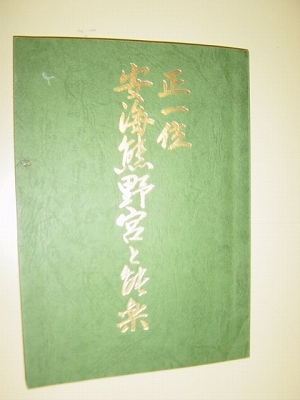 正一位
安海熊野宮と能楽